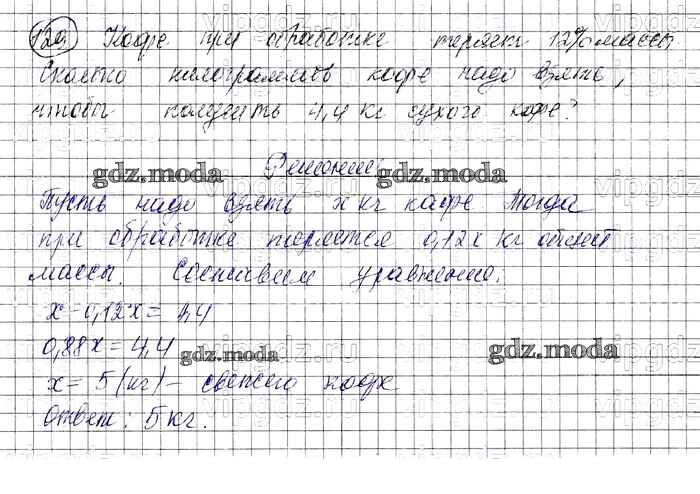 129. Кофе при обработке теряет 12% массы
Сколько килограммов кофе надо взять,
чтобы получить 4,4 кг сухого кофе?
Решение
gdz.moda gdz.moda
Пусть надо взять x кг кофе Тогда
при обработке теряется 0,12x кг
массы. Составим уравнение.
x - 0,12x = 4,4
0,88x = 4,4
gdz.moda gdz.moda
x = 5 (кг) - свежего кофе
Ответ: 5 кг.